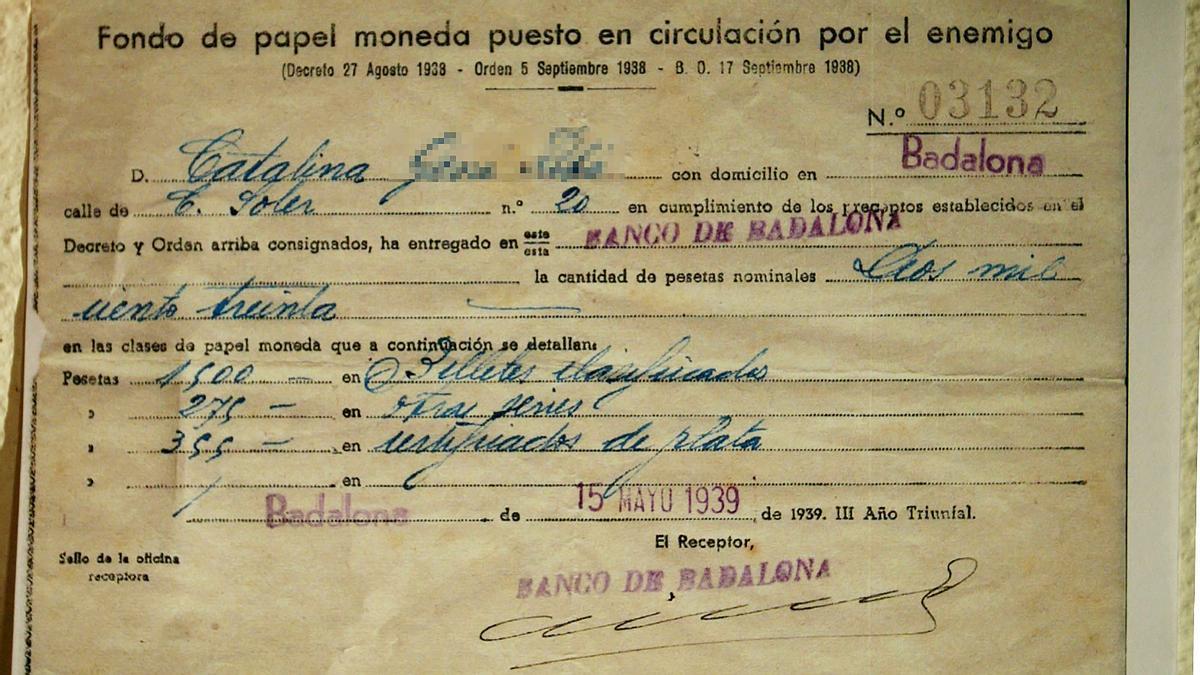 Fondo de papel moneda puesto en circulación por el enemigo
(Decreto 27 Agosto 1938 - Orden 5 Septiembre 1938 - B. O. 17 Septiembre 1938)
N.º 03132
D. Catalina con domicilio en Badalona
calle de E. Soler n.º 20 en cumplimiento de los preceptos establecidos en el
Decreto y Orden arriba consignados, ha entregado en este esta BANCO DE BADALONA
la cantidad de pesetas nominales Dos mil
ciento treinta
en las clases de papel moneda que a continuación se detallan:
Pesetas 1500 — en Billetes clasificados
» 275 — en otras series
» 355 — en certificados de plata
» en
Badalona de 15 MAYO 1939 de 1939. III Año Triunfal.
El Receptor,
Sello de la oficina
receptora
BANCO DE BADALONA